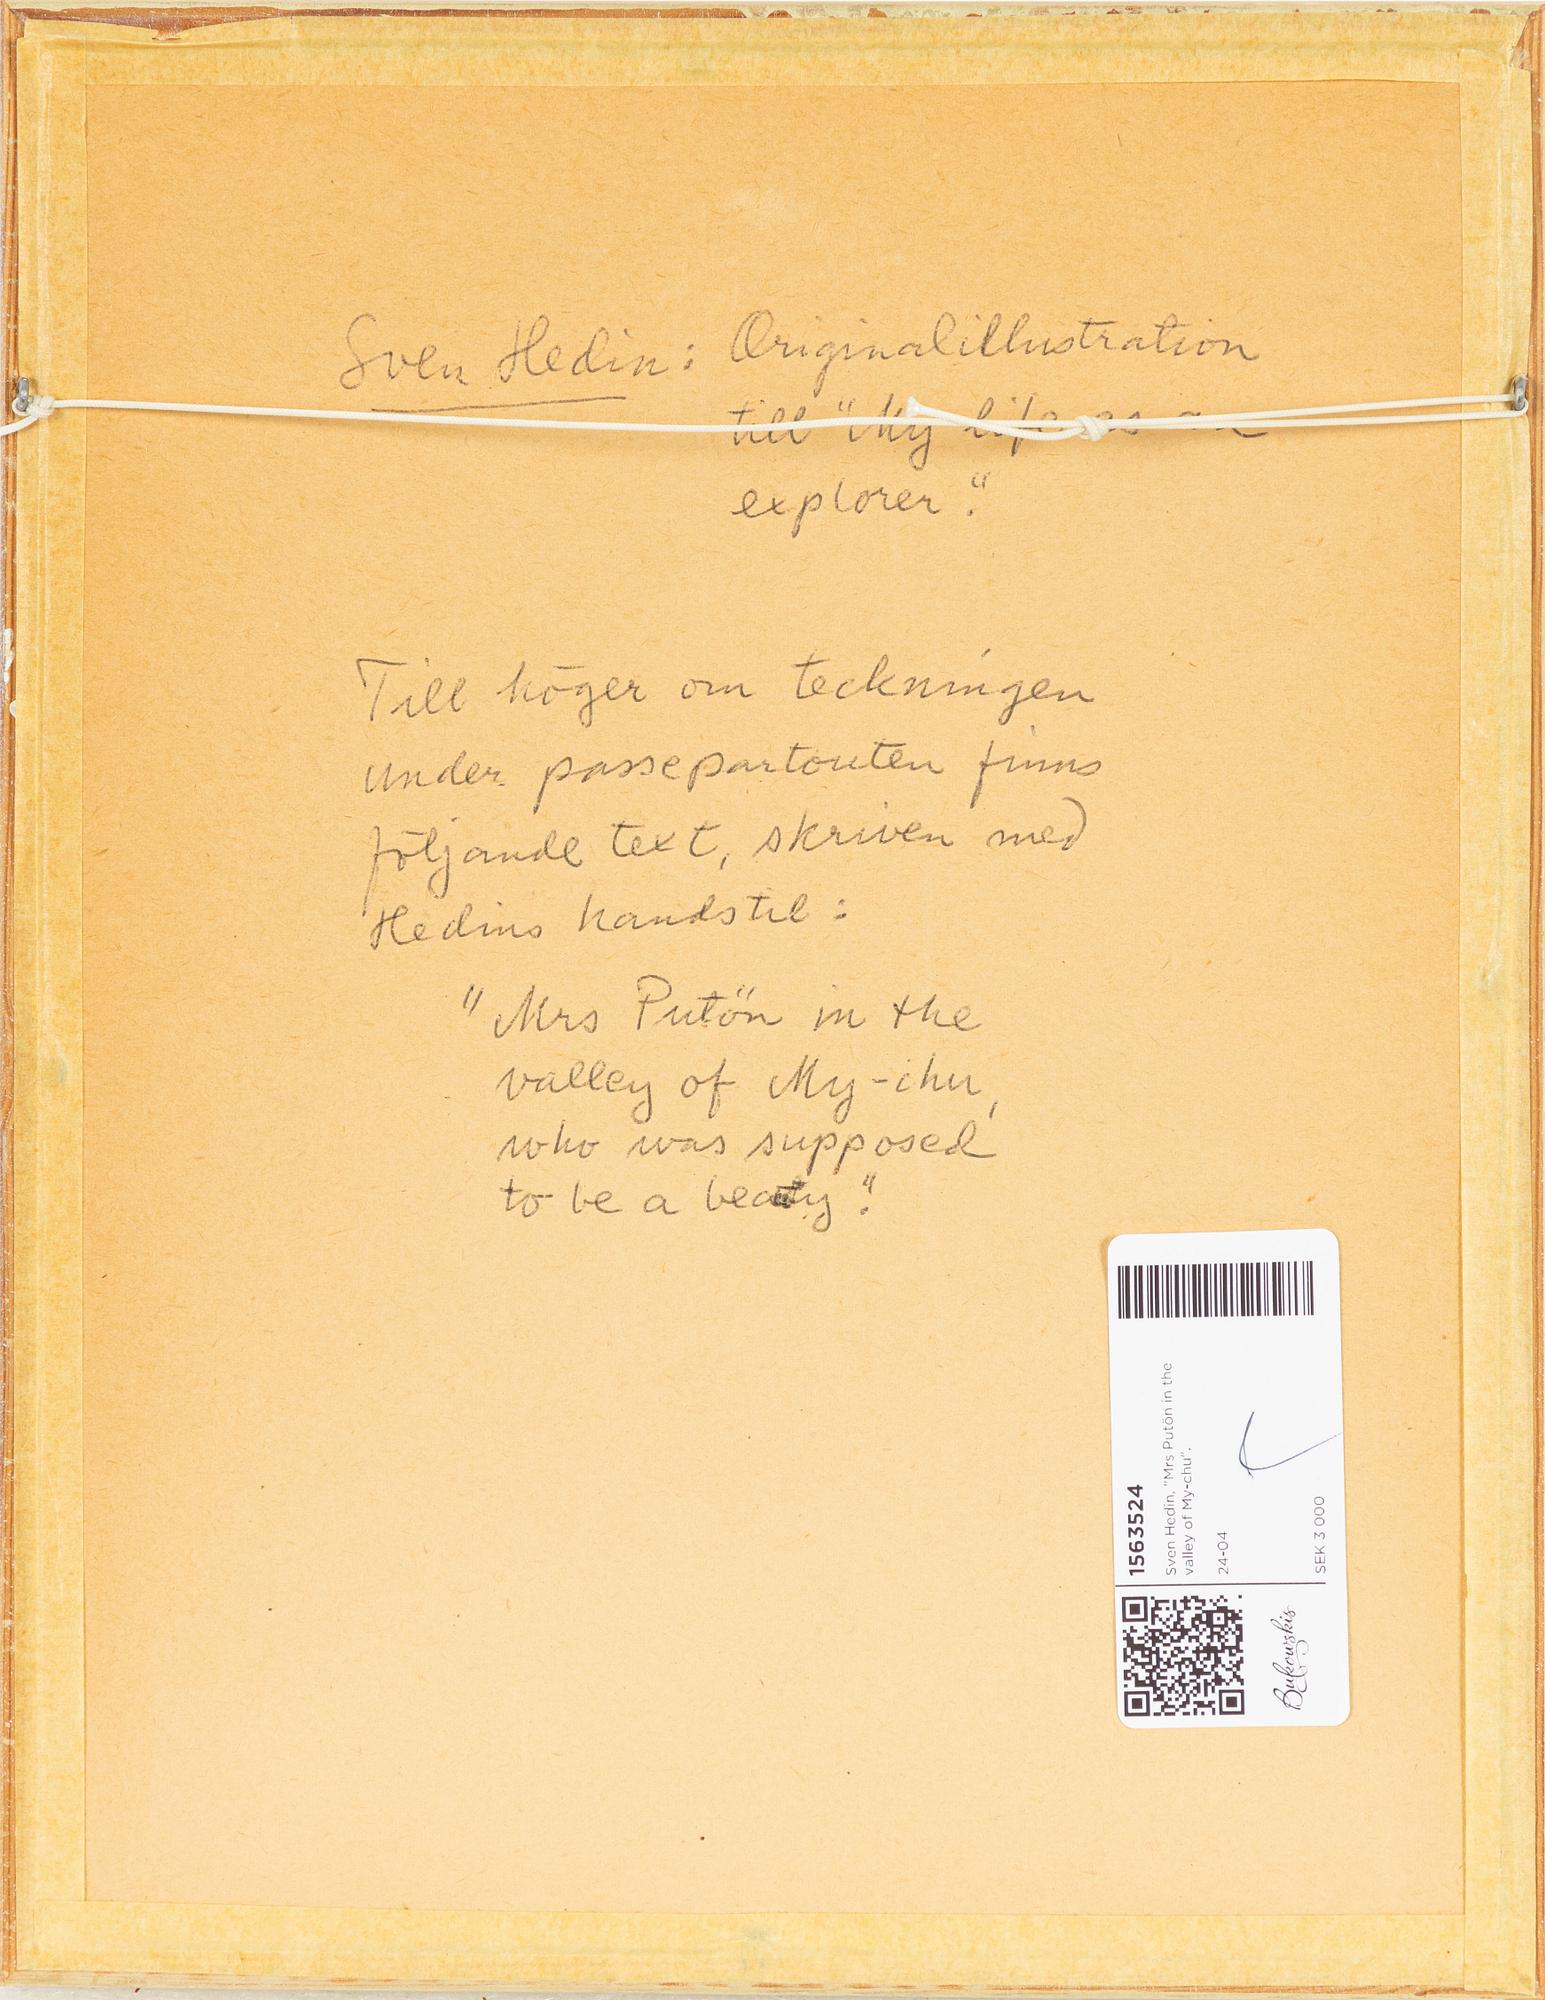 Sven Hedin: Originalillustration
till "My life as an
explorer."
Till höger om teckningen
under passepartouten finns
följande text, skriven med
Hedins handstil:
"Mrs Putön in the
valley of My-chu,
who was supposed
to be a beauty."
1563524
Sven Hedin, "Mrs Putön in the
valley of My-chu".
24-04
SEK 3 000
Bukowskis